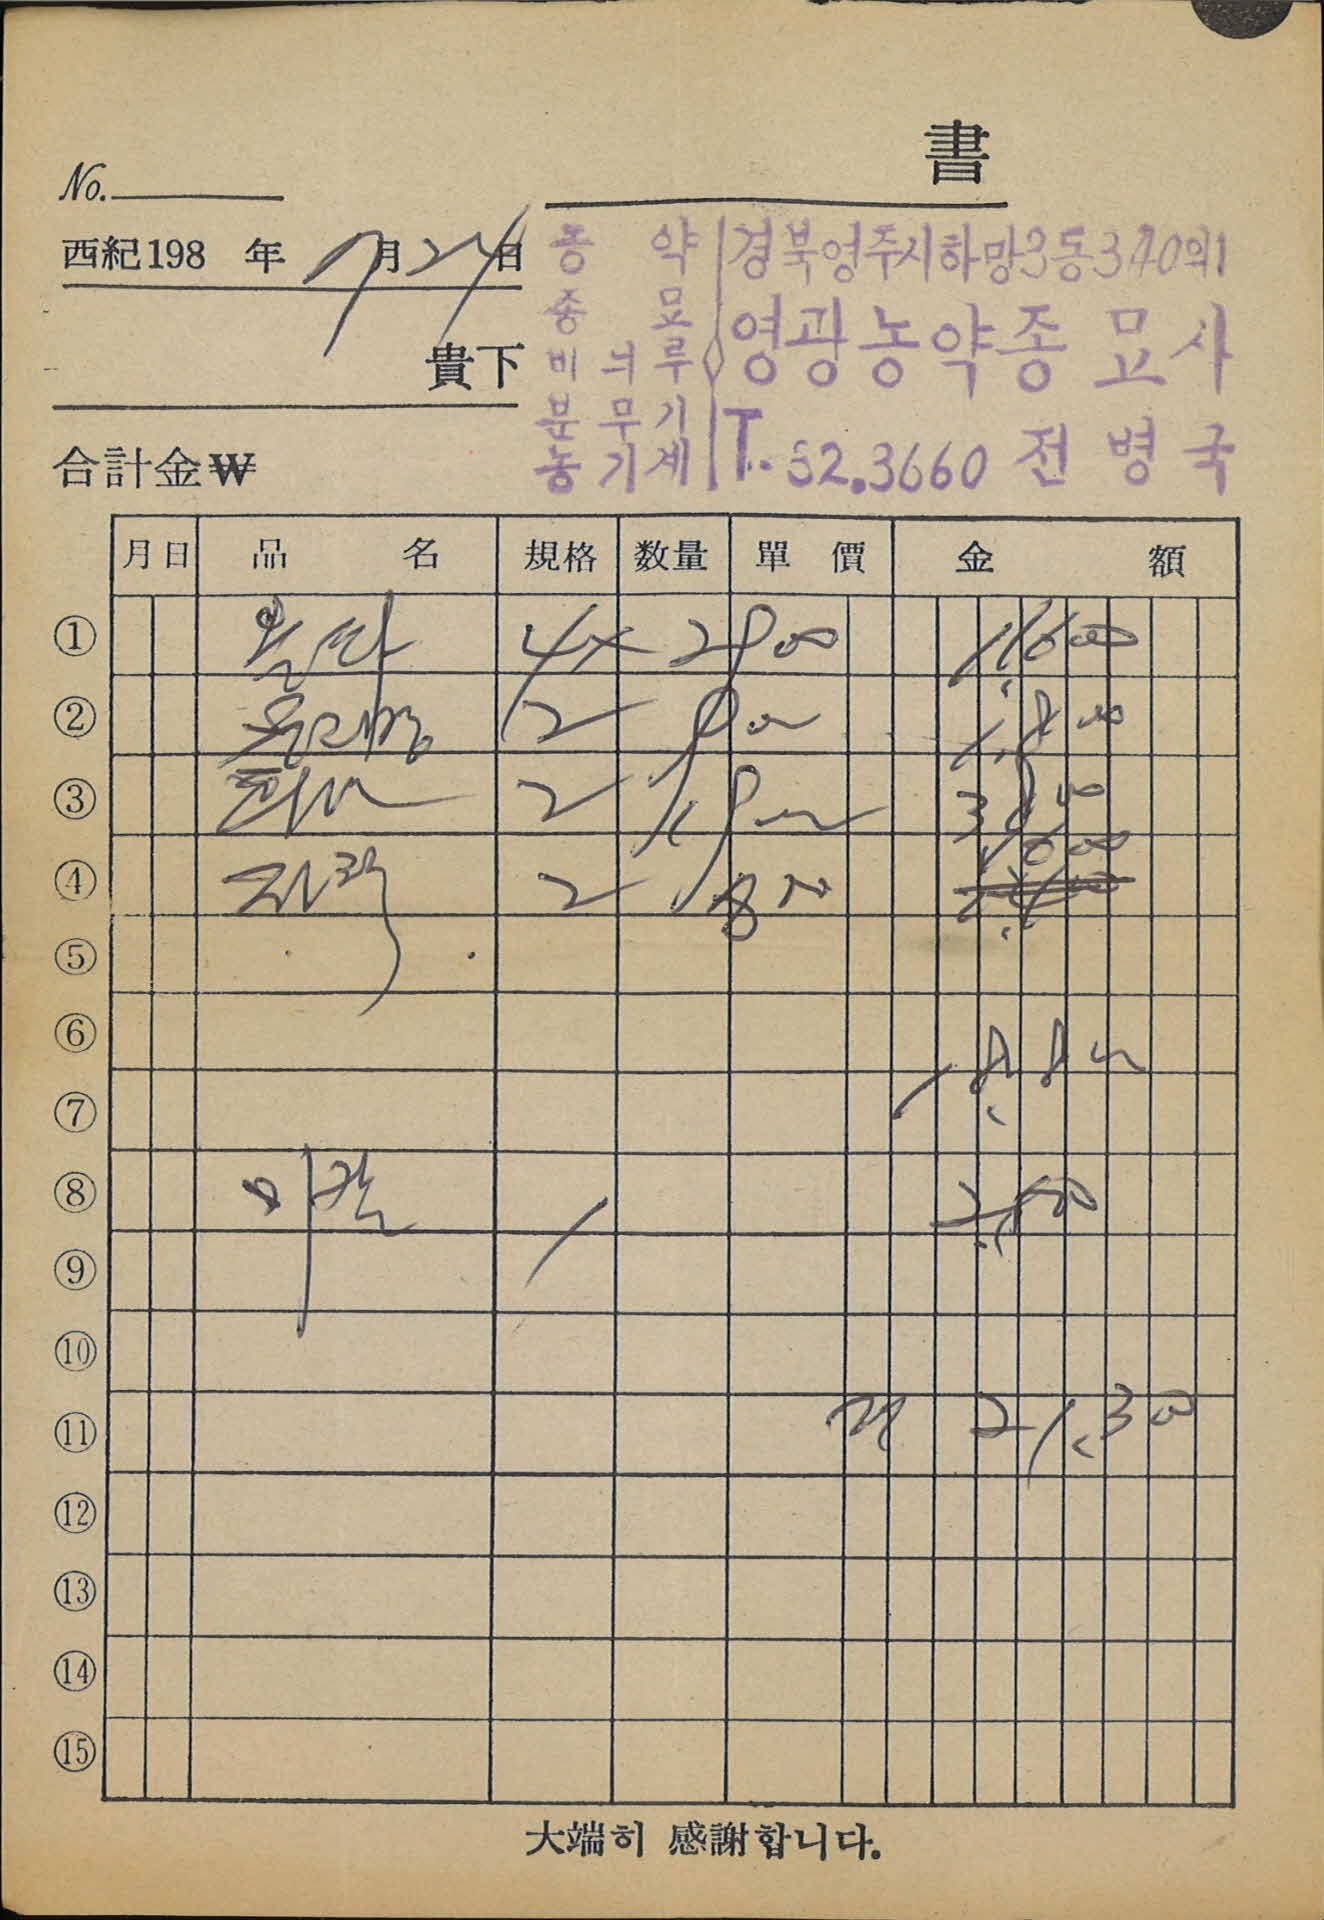 書
No.
西紀198 年 7月24日
貴下
合計金₩
농약
종묘
비늬루
분무기
농기계
경북영주시하망3동370의1
영광농약종묘사
T. 52.3660 전병국
月日 品名 規格 数量 單價 金額
① 4 2900 11,600
② 2 900 1,800
③ 2 1900 3800
④ 2 800 1600
⑤
⑥
18,800
⑦
⑧ 1 2,500
⑨
⑩
⑪ 계 21,300
⑫
⑬
⑭
⑮
大端히 感謝합니다.